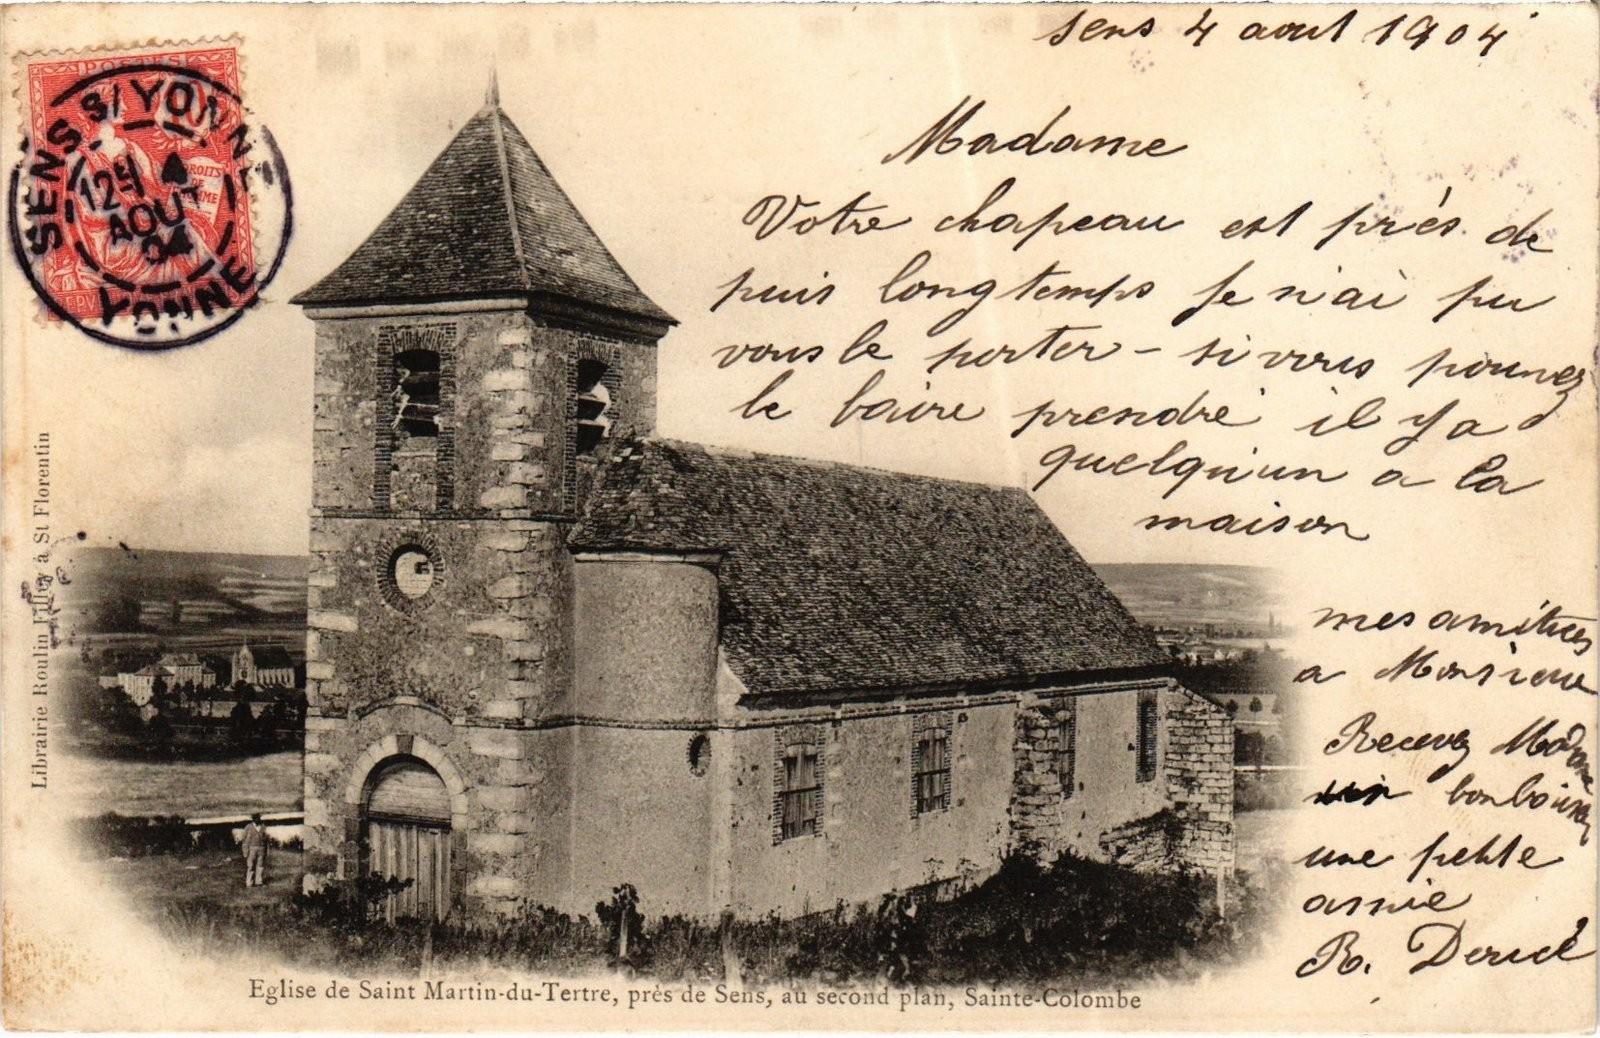 Sens 4 aout 1904
POSTES
10
DROITS
DE
HOMME
SENS S/ YONNE
12
4
AOUT
04
YONNE
Madame
Votre chapeau est près de
puis longtemps Je n'ai pu
vous le porter - si vous pouvez
le faire prendre il y a
quelqu'un a la
maison
mes amitiées
a Monsieur
Recevez Madame
bonbaisers
une petite
amie
R.
Librairie Roulin Filley à St Florentin
Eglise de Saint Martin-du-Tertre, près de Sens, au second plan, Sainte-Colombe